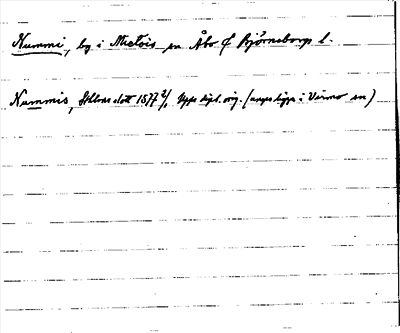 Nummi, by i Mietois sn Åbo o Björneborgs l.
Nummis, Sthlms slott 1577 2/1 Upps dipl. orig. (anges ligga i Virmo sn)